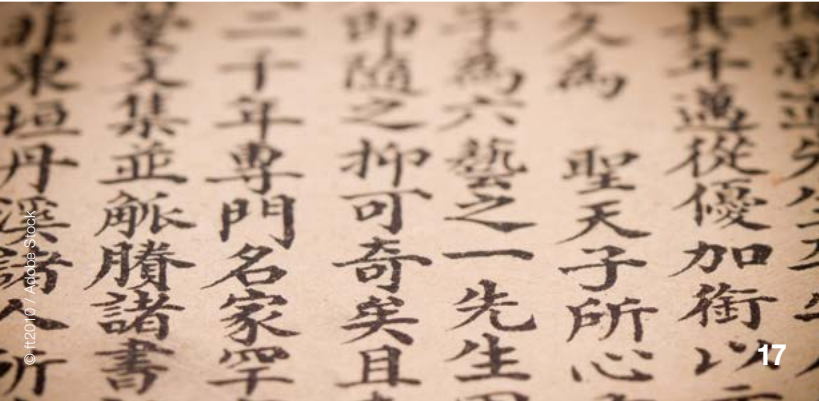 年邁從優加銜以
久為 聖天子所心
為六藝之一先生
即隨之抑可奇矣且
二千年專門名家罕
文集並觚賸諸書
東垣丹溪諸人所
© ft2010 / Adobe Stock
17